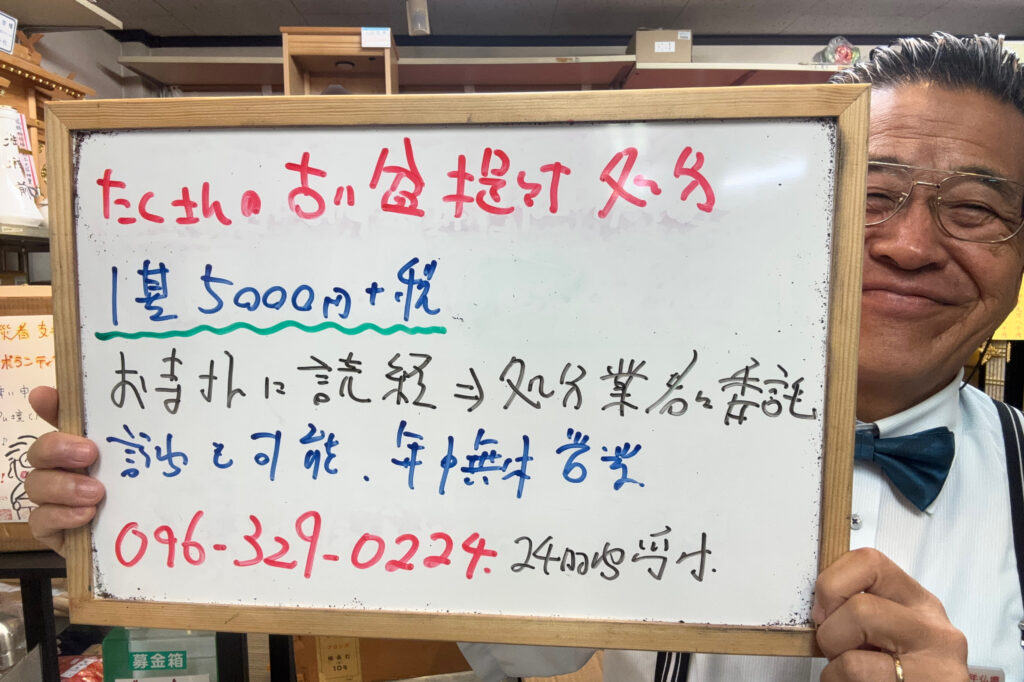 たくさんの古い盆提灯処分
1基 5000円+税
お寺さんに読経⇒処分業者に委託
訪も可能、年中無休営業
096-329-0224. 24時間受付.
募金箱